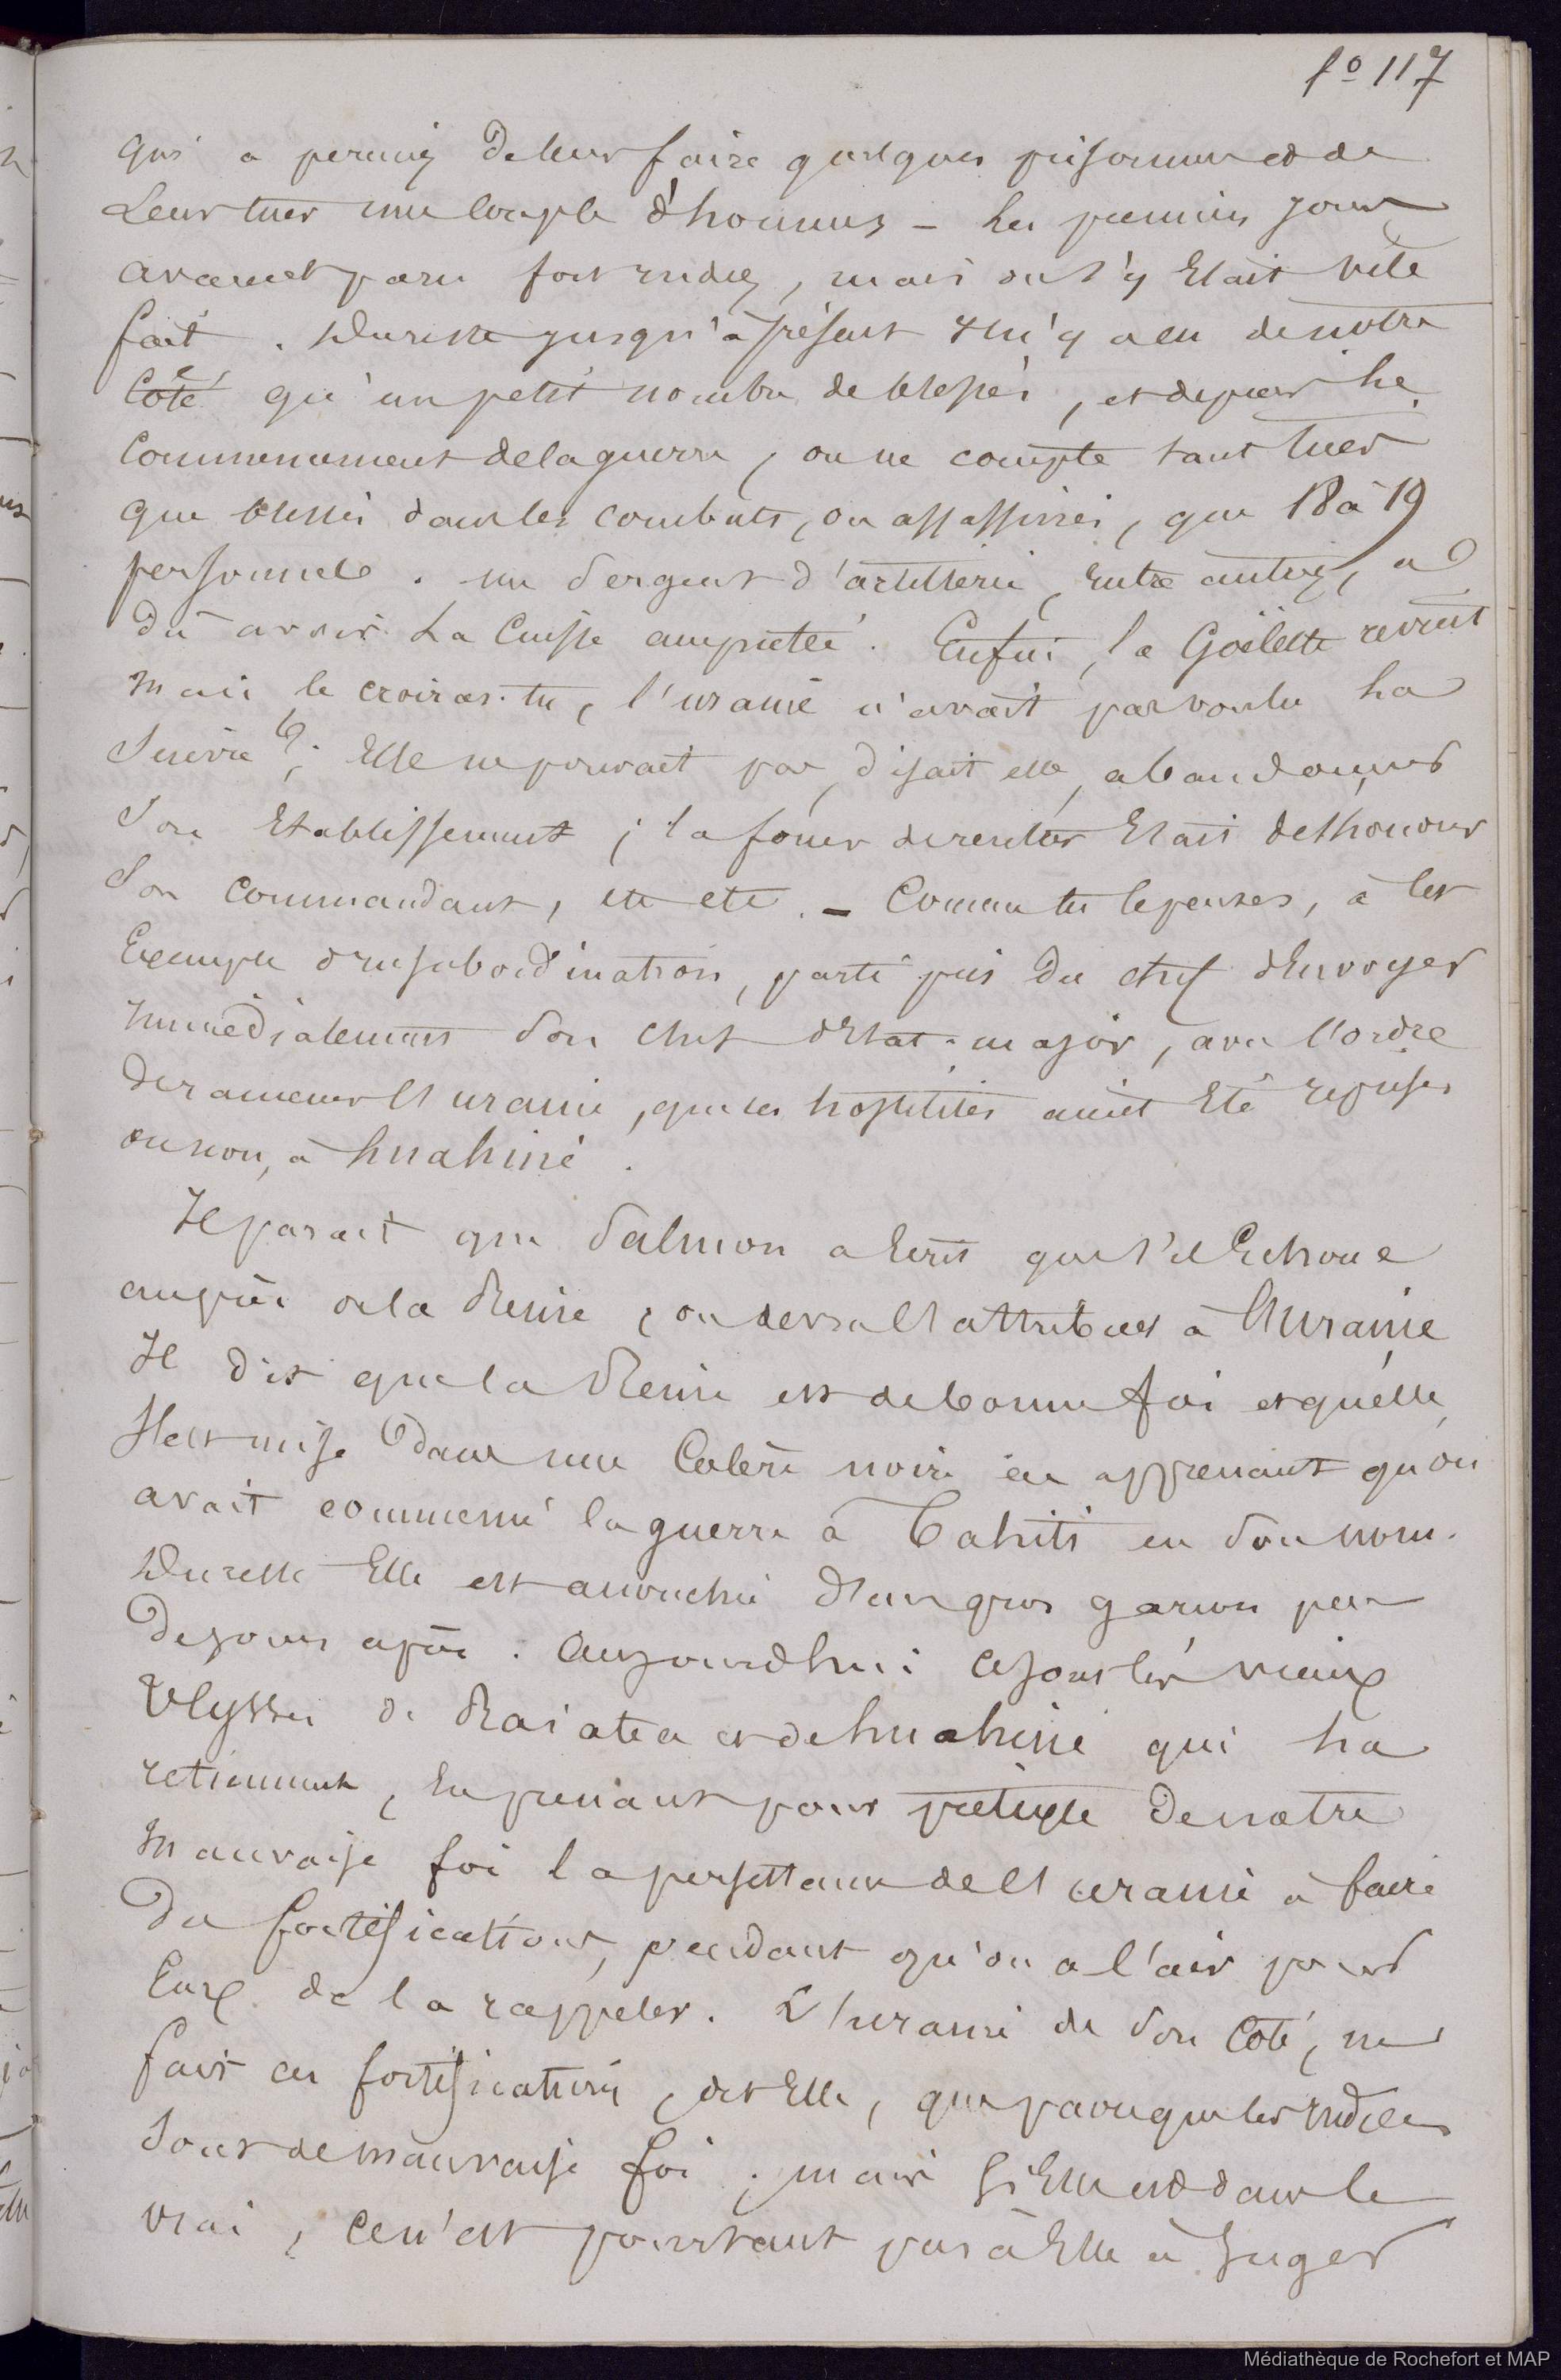 fo 117
qui a permis de leur faire quelques prisonniers et de
Leur tuer une couple d'hommes – Les premiers jours
avaient paru fort rudes, mais on s'y Etait vite
fait. Du reste jusqu'à présent Il n'y a eu de notre
Côté qu'un petit nombre de blessés, et depuis le
Commencement de la guerre, on ne compte tant tués
que blessés dans les combats, ou assassinés, que 18 à 19
personnes. un Sergent d'artillerie, Entre autres, a
dû avoir La Cuisse amputée. Enfin, la Goëlette revint
mais le croiras-tu, l'uranie n'avait pas voulu La
Suivre ; Elle ne pouvait pas, disait elle, abandonner
Son Etablissement ; la forcer de reculer Etait deshonorer
Son Commandant, etc etc. – Comme tu le penses, à cet
Exemple d'insubordination, parti pris du chef d'Envoyer
Immédiatement Son Chef d'Etat-major, avec l'ordre
de ramener l'uranie, que les hostilités aient Eté reprises
ou non, à huahiné.
Il parait que Salmon a Ecrit que s'il Echoue
auprès de la Reine, on devra l'attribuer à l'Uranie
Il dit que la Reine est de bonne foi et qu'elle
S'est mise dans une Colère noire en apprenant qu'on
avait commencé la guerre à Tahiti en Son nom.
Du reste Elle est accouchée d'un gros garçon peu
de jours après. Aujourd'hui ce sont les vieux
Ulysses de Raiatea et de huahiné qui La
retiennent, En prenant pour prétexte de notre
mauvaise foi la persistance de l'uranie à faire
Des fortifications, pendant qu'on a l'air pour
Eux de la rappeler. L'uranie de Son Côté, ne
fait ces fortifications, dit Elle, que parce que les indiens
Sont de mauvaise foi ; mais Si Elle est dans le
vrai, ce n'est pourtant pas à Elle à Juger
Médiathèque de Rochefort et MAP